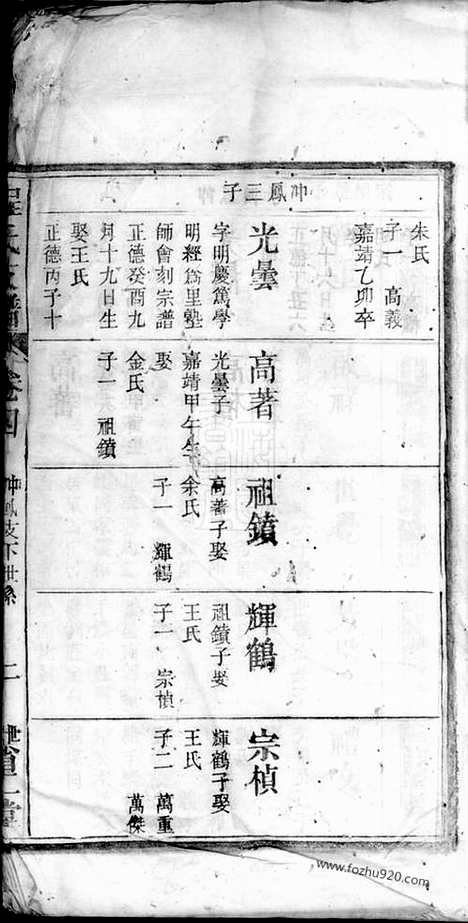 冲鳳三子
朱氏
子一 高義
嘉靖乙卯卒
光曇
字明慶篤學
明經爲里塾
師會刻宗譜
正德癸酉九
月十九日生
娶王氏
正德丙子十
高著
光曇子
嘉靖甲午生
娶
金氏
子一 祖鐼
祖鐼
高著子娶
余氏
子一 輝鶴
輝鶴
祖鐼子娶
王氏
子一 宗楨
宗楨
輝鶴子娶
王氏
子二 萬重
萬傑
卷四
冲鳳支下世系
二
www.fozhu920.com